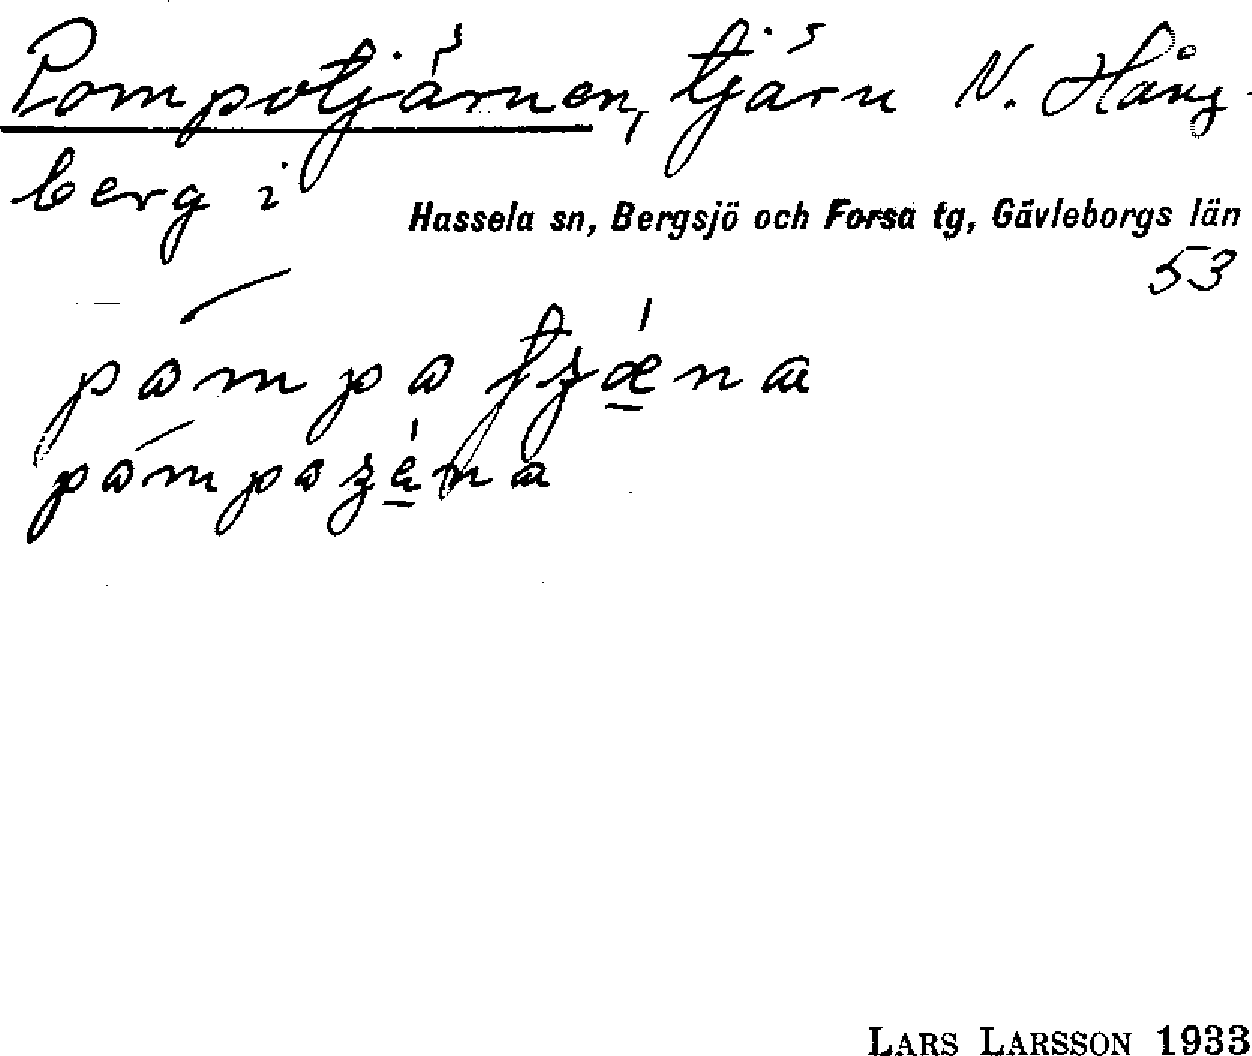 Pompotjärnen, tjärn N. Hång-
berg i
Hassela sn, Bergsjö och Forsa tg, Gävleborgs län
53
LARS LARSSON 1933